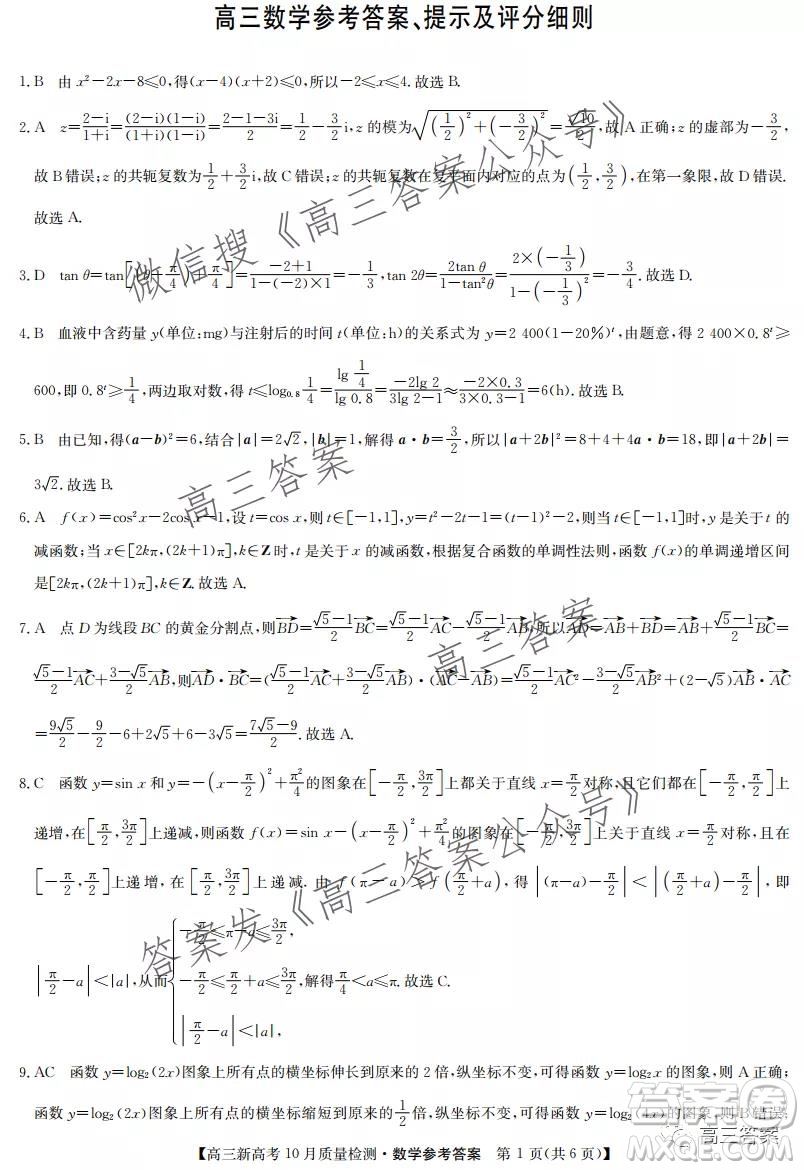 高三数学参考答案、提示及评分细则
1. B 由 x²－2x－8≤0,得(x－4)(x＋2)≤0,所以－2≤x≤4.故选 B.
2. A z=(2－i)/(1＋i)=(2－i)(1－i)/(1＋i)(1－i)=(2－1－3i)/2=1/2－3/2 i, z 的模为√((1/2)²＋(－3/2)²)=√10/2,故 A 正确; z 的虚部为－3/2,
故 B 错误; z 的共轭复数为 1/2＋3/2 i,故 C 错误; z 的共轭复数在复平面内对应的点为(1/2,3/2),在第一象限,故 D 错误.
故选 A.
3. D tan θ=tan[(θ＋π/4)－π/4]=(－2＋1)/(1－(－2)×1)=－1/3, tan 2θ=2tan θ/(1－tan²θ)=2×(－1/3)/(1－(－1/3)²)=－3/4.故选 D.
4. B 血液中含药量 y(单位:mg)与注射后的时间 t(单位:h)的关系式为 y=2 400(1－20%)ᵗ,由题意,得 2 400×0.8ᵗ≥
600,即 0.8ᵗ≥1/4,两边取对数,得 t≤log₀.₈ 1/4=lg 1/4 / lg 0.8=－2lg 2/(3lg 2－1)≈－2×0.3/(3×0.3－1)=6(h).故选 B.
5. B 由已知,得(a－b)²=6,结合|a|=2√2,|b|=1,解得 a·b=3/2,所以|a＋2b|²=8＋4＋4a·b=18,即|a＋2b|=
3√2.故选 B.
6. A f(x)=cos²x－2cos x－1,设 t=cos x,则 t∈[－1,1],y=t²－2t－1=(t－1)²－2,则当 t∈[－1,1]时,y 是关于 t 的
减函数;当 x∈[2kπ,(2k＋1)π],k∈Z 时,t 是关于 x 的减函数,根据复合函数的单调性法则,函数 f(x)的单调递增区间
是[2kπ,(2k＋1)π],k∈Z.故选 A.
7. A 点 D 为线段 BC 的黄金分割点,则BD→=(√5－1)/2 BC→=(√5－1)/2 AC→－(√5－1)/2 AB→,所以AD→=AB→＋BD→=AB→＋(√5－1)/2 BC→=
(√5－1)/2 AC→＋(3－√5)/2 AB→,则AD→·BC→=((√5－1)/2 AC→＋(3－√5)/2 AB→)·(AC→－AB→)=(√5－1)/2 AC→²－(3－√5)/2 AB→²＋(2－√5)AB→·AC→
=9√5/2－9/2－6＋2√5＋6－3√5=(7√5－9)/2.故选 A.
8. C 函数 y=sin x 和 y=－(x－π/2)²＋π²/4的图象在[－π/2,3π/2]上都关于直线 x=π/2对称,且它们都在[－π/2,π/2]上
递增,在[π/2,3π/2]上递减,则函数 f(x)=sin x－(x－π/2)²＋π²/4的图象在[－π/2,3π/2]上关于直线 x=π/2对称,且在
[－π/2,π/2]上递增,在[π/2,3π/2]上递减.由 f(π－a)>f(π/2＋a),得|(π－a)－π/2|<|(π/2＋a)－π/2|,即
|π/2－a|<|a|,从而{－π/2≤π－a≤3π/2, －π/2≤π/2＋a≤3π/2, |π/2－a|<|a|, 解得π/4<a≤π.故选 C.
9. AC 函数 y=log₂(2x)图象上所有点的横坐标伸长到原来的 2 倍,纵坐标不变,可得函数 y=log₂x 的图象,则 A 正确;
函数 y=log₂(2x)图象上所有点的横坐标缩短到原来的1/2倍,纵坐标不变,可得函数 y=log₂(4x)的图象,则 B 错误;
【高三新高考 10 月质量检测·数学参考答案 第 1 页(共 6 页)】
微信搜《高三答案公众号》
高三答案
高三答案
答案发《高三答案公众号》
高三答案
答案圈